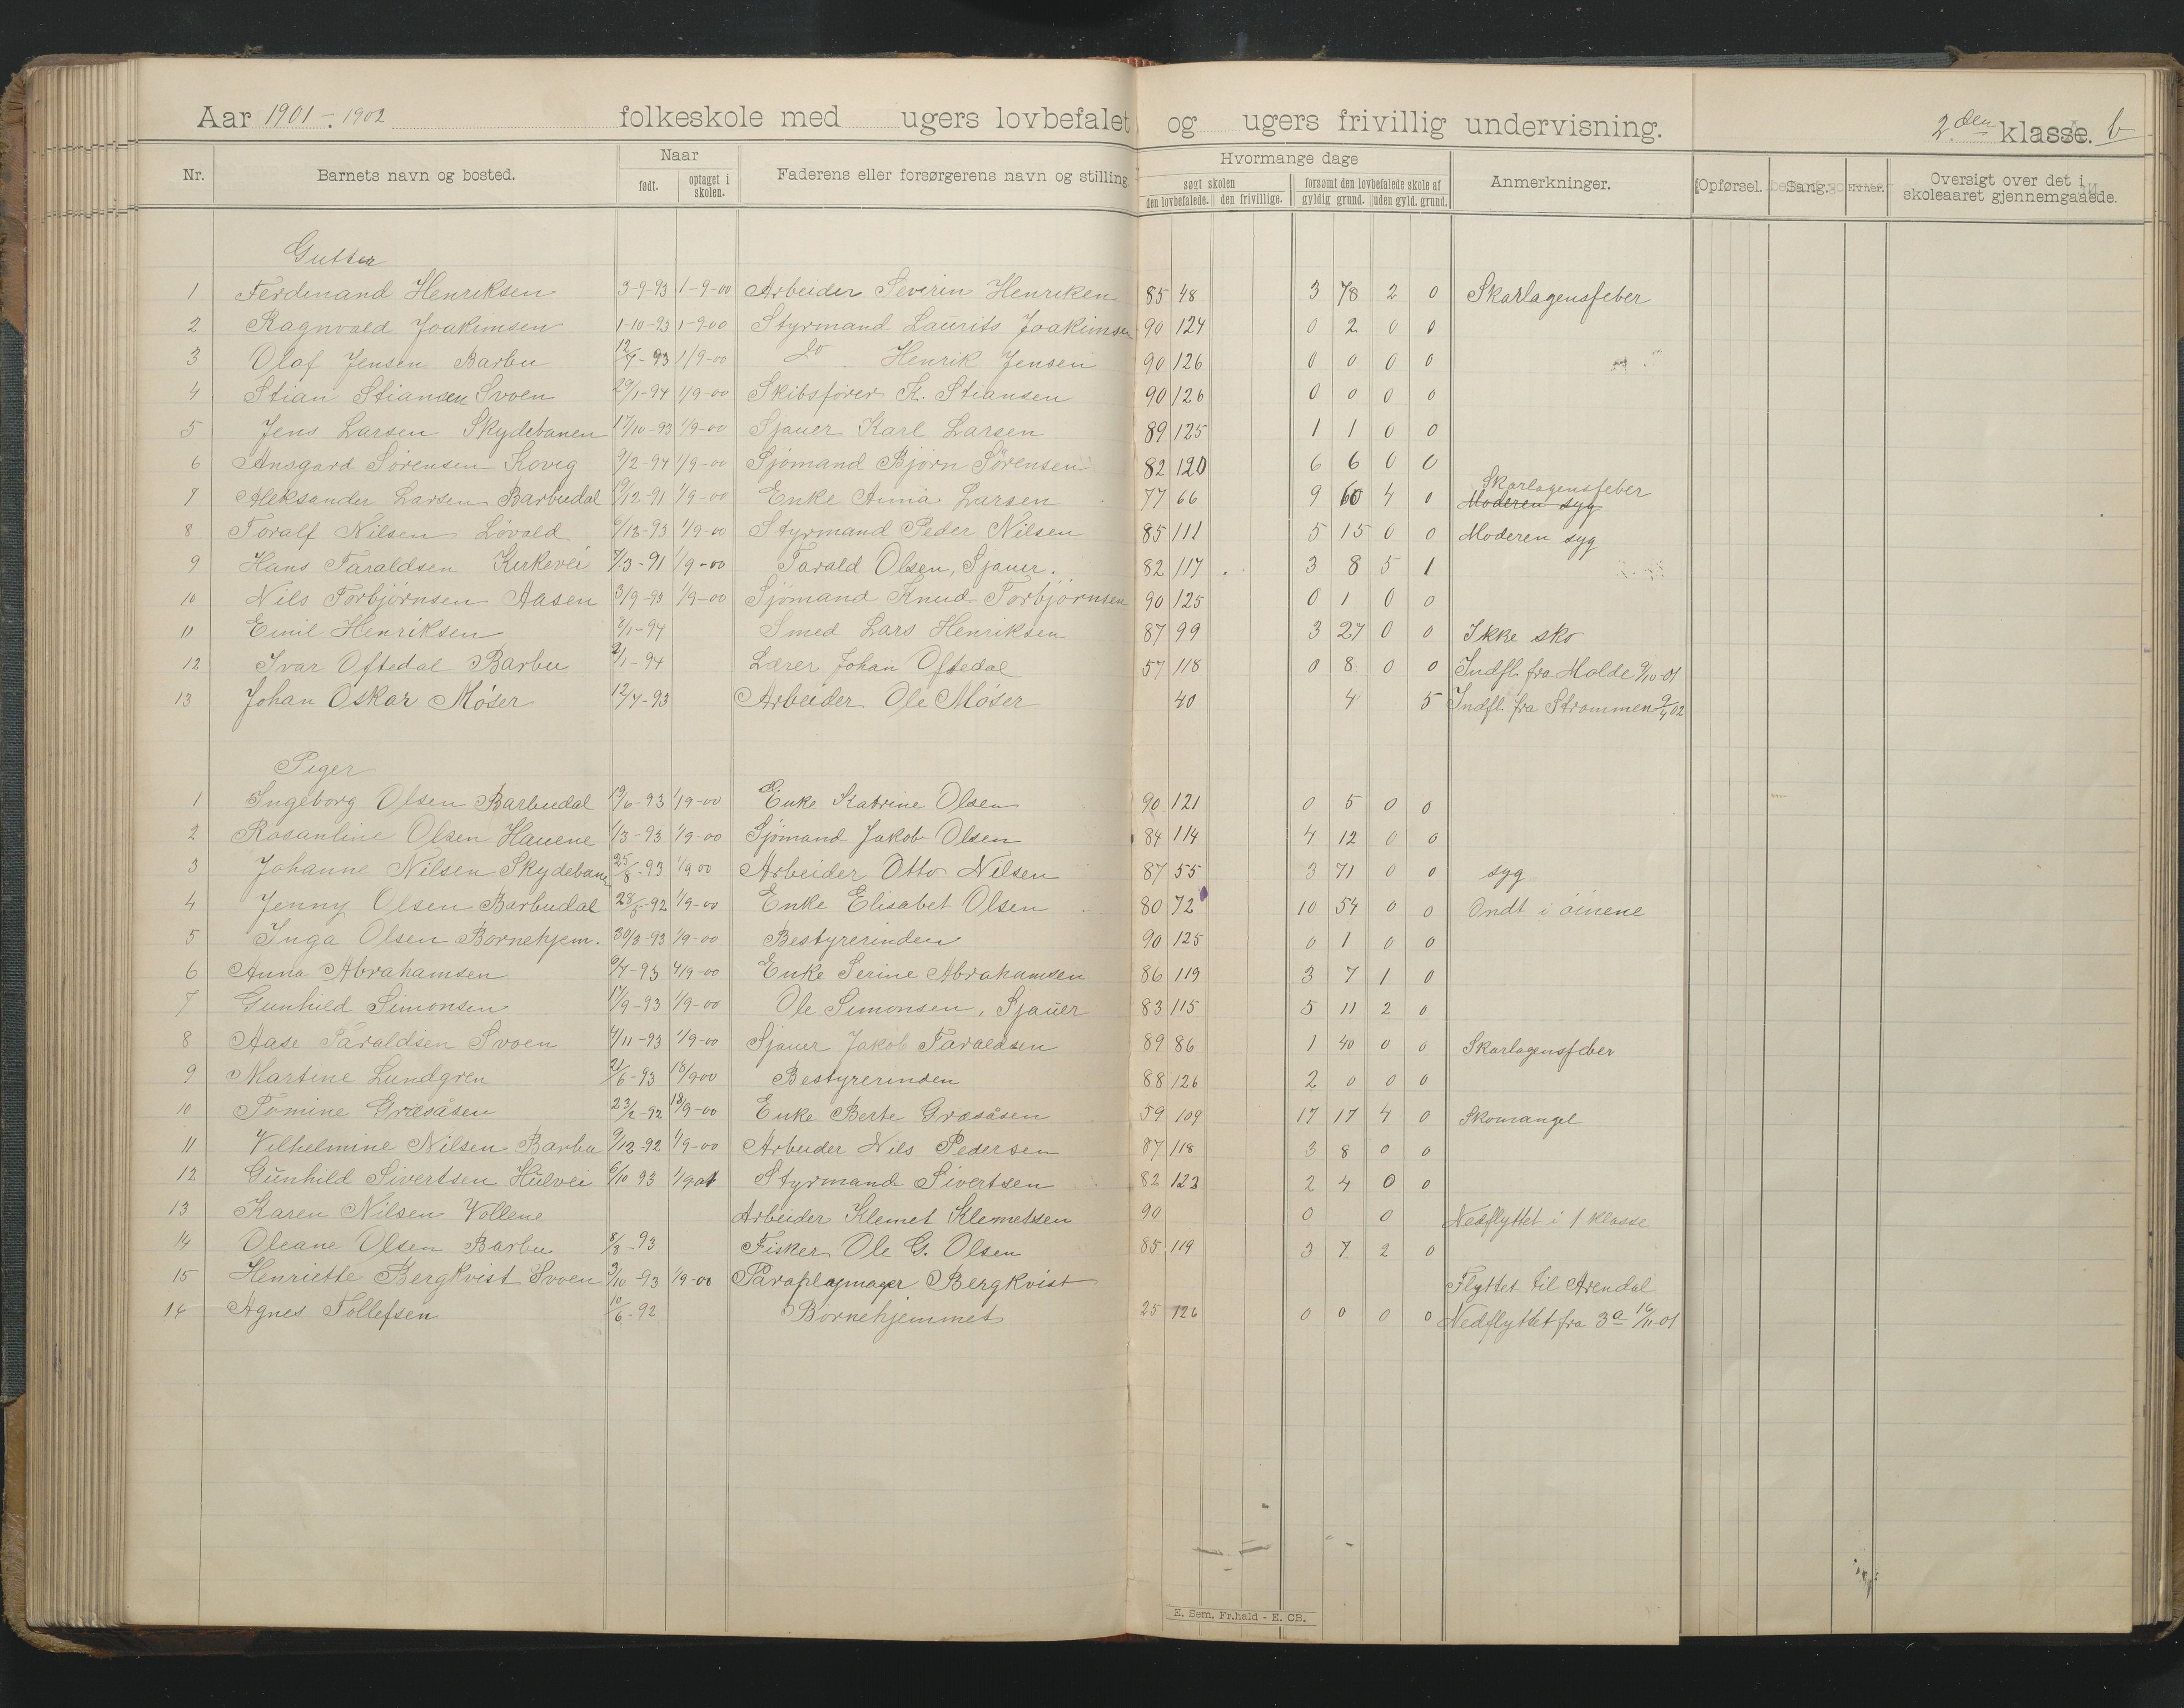 Aar 1901 - 1902 folkeskole med ugers lovbefalet og ugers frivillig undervisning. 2.den klasse. b
Nr. Barnets navn og bosted. Naar født. optaget i skolen. Faderens eller forsørgerens navn og stilling. Hvormange dage søgt skolen den lovbefalede. den frivillige. forsømt den lovbefalede skole af gyldig grund. uden gyld. grund. Anmerkninger. Opførsel. Sang. Oversigt over det i skoleaaret gjennemgaaede.
Gutter
1 Ferdinand Henriksen 3-9-93 1-9-00 Arbeider Severin Henriken 85 48 3 78 2 0 Skarlagensfeber
2 Ragnvald Joakimsen 1-10-93 1-9-00 Styrmand Laurits Joakimsen 90 124 0 2 0 0
3 Olaf Jensen Barbu 12/7-93 1/9-00 Do Henrik Jensen 90 126 0 0 0 0
4 Stian Stiansen Svoen 29/1-94 1/9-00 Skibsfører K. Stiansen 90 126 0 0 0 0
5 Jens Larsen Skydebanen 17/10-93 1/9-00 Sjauer Karl Larsen 89 125 1 1 0 0
6 Ansgard Sörensen 9/2-94 1/9-00 Sjömand Bjørn Sörensen 82 120 6 6 0 0
7 Aleksander Larsen Barbudal 19/12-91 1/9-00 Enke Anna Larsen 77 66 9 60 4 0 Moderen syg Skarlagensfeber
8 Toralf Nilsen Lövold 6/12-93 1/9-00 Styrmand Peder Nilsen 85 111 5 15 0 0 Moderen syg
9 Hans Taraldsen Kirkevei 7/3-91 1/9-00 Tarald Olsen, Sjauer. 82 117 3 8 5 1
10 Nils Torbjörnsen Aasen 3/9-93 1/9-00 Sjömand Knud Torbjörnsen 90 125 0 1 0 0
11 Emil Henriksen 2/1-94 Smed Lars Henriksen 87 99 3 27 0 0 Ikke sko
12 Ivar Oftedal Barbu 2/1-94 Lærer Johan Oftedal 57 118 0 8 0 0 Indfl. fra Molde 9/10-01
13 Johan Oskar Móser 12/7-93 Arbeider Ole Móser 40 4 5 Indfl. fra Strommen 9/4 02
Piger
1 Ingeborg Olsen Barbudal 19/6-93 1/9-00 Enke Katrine Olsen 90 121 0 5 0 0
2 Rosanline Olsen Hauene 1/3-93 1/9-00 Sjömand Jakob Olsen 84 114 4 12 0 0
3 Johanne Nilsen Skydebane 25/8-93 1/9 00 Arbeider Otto Nilsen 87 55 3 71 0 0 syg
4 Jenny Olsen Barbudal 28/5-92 1/9-00 Enke Elisabet Olsen 80 72 10 54 0 0 Ondt i öinene
5 Inga Olsen Bornehjem. 30/3-93 1/9-00 Bestyrerinden 90 125 0 1 0 0
6 Anna Abrahamsen 6/7-93 4/9-00 Enke Serine Abrahamsen 86 119 3 7 1 0
7 Gunhild Simonsen 17/9-93 1/9-00 Ole Simonsen, Sjauer 83 115 5 11 2 0
8 Aase Taraldsen Svoen 4/11-93 1/9-00 Sjauer Jakob Taraldsen 89 86 1 40 0 0 Skarlagensfeber
9 Martine Lundgren 21/6-93 18/9 00 Bestyrerinden 88 126 2 0 0 0
10 Tomine Græsåsen 23/2-92 18/9-00 Enke Berte Græsåsen 59 109 17 17 4 0 Skomangel
11 Vilhelmine Nilsen Barbu 9/12-92 1/9-00 Arbeider Nils Pedersen 87 118 3 8 0 0
12 Gunhild Sivertsen Hulvei 6/10 93 1/9 01 Styrmand Sivertsen 82 122 2 4 0 0
13 Karen Nilsen Vollene Arbeider Klemet Klemetsen 90 0 0 Nedflyttet i 1 klasse
14 Oleane Olsen Barbu 8/3-93 Fisker Ole G. Olsen 85 119 3 7 2 0
15 Henriette Bergkvist Svoen 2/10-93 1/9-00 Paraplymager Bergkvist Flyttet til Arendal
16 Agnes Tollefsen 10/6-92 Bornehjemmet 25 126 0 0 0 0 Nedflyttet fra 3a 16/11-01
E. Sem, Fr.hald - E. CB.